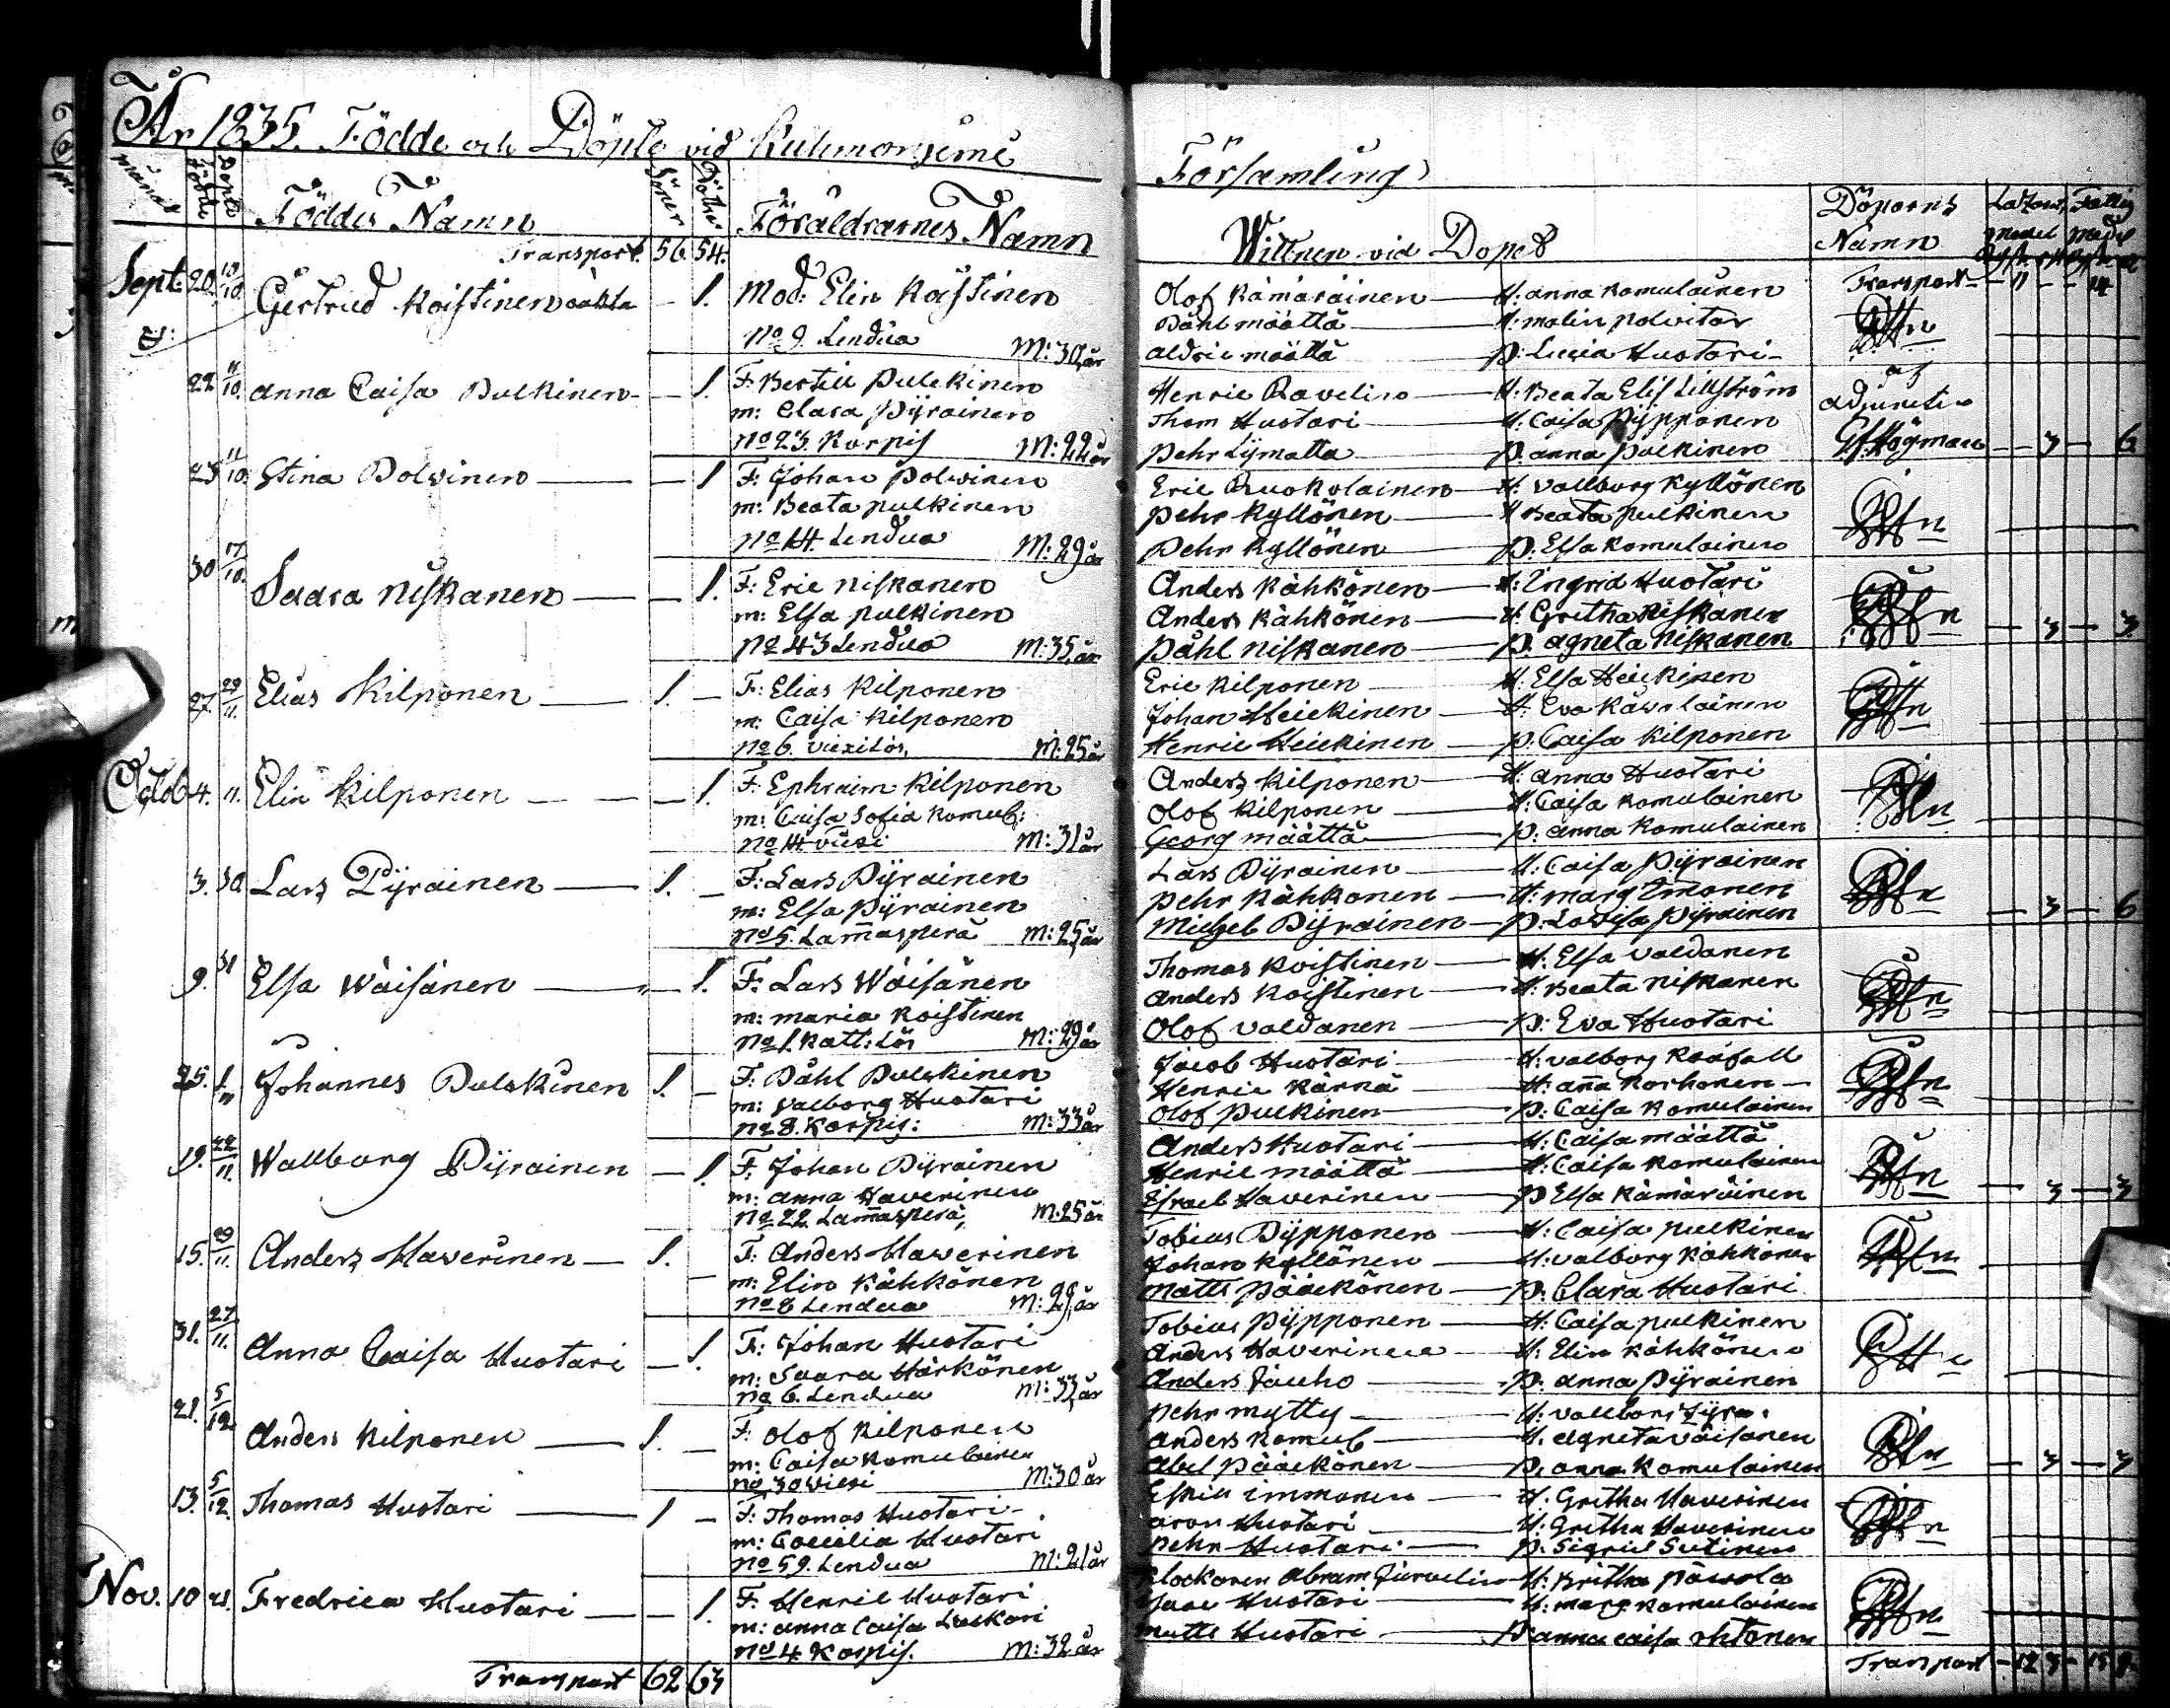 År 1835. Födde och Döpte vid Kuhmoniemi Församling
Månad Födde Döpte Föddes Namn Söner Döttrar Föräldrarnes Namn
Wittnen vid Dopet Döparens Namn
Transport. 56. 54.
Transport 11 14
Sept: 20. 10 Gertrud Koistinen oäkta 1. Mod: Elin Koistinen
No 9. Lendua M: 30 år
Olof Kämäräinen H: Anna Komulainen
Påhl Määttä H: Malin
Määttä p: Lucia Huotari
22 11/10. Anna Caisa Pulkinen 1. F: Bertill Pulkinen
m: Clara Pÿrainen
No 23. Korpis M: 22 år
Henric Ravelin H: Beata Elis Lillström
Thom Huotari H: Caisa Pÿpponen
Pehr Lÿmatta p. Anna Pulkinen
adjuncten
3 6
25 11/10. Stina Polvinen 1 F: Johan Polvinen
m: Beata Pulkinen
No 14. Lendua M: 29 år
Eric Ruokolainen H: Vallborg Kyllönen
Pehr Kyllönen H Beata Pulkinen
Pehr Kyllönen p. Elsa Komulainen
30 17/10. Saara Niskanen 1. F: Eric Niskanen
m: Elsa Pulkinen
No 43 Lendua M: 35 år
Anders Kähkönen H: Ingrid Huotari
Anders Kähkönen H Gretha Niskanen
Påhl Niskanen p. Agneta Niskanen
3 3
27. 29/11. Elias Kilponen 1. F: Elias Kilponen
m: Caisa Kilponen
No 6. M: 25 år
Eric Kilponen H: Elsa Heickinen
Johan Heickinen H: Eva
Henric Heickinen p. Caisa Kilponen
Octob 4. 11. Elin Kilponen 1. F: Ephraim Kilponen
m: Caisa Sofia Komul:
No 14 M: 31 år
Anders Kilponen H: Anna Huotari
Olof Kilponen H: Caisa Komulainen
Georg Määttä p: Anna Komulainen
3. 30. Lars Pÿrainen 1. F: Lars Pÿrainen
m: Elsa Pÿrainen
No 5. Lam̄asperä M: 25 år
Lars Pÿrainen H: Caisa Pÿrainen
Pehr Kähkonen H: Marg Immonen
Michel Pÿrainen p. Lovisa Pÿrainen
3 6
9. 31 Elsa Wäisänen 1. F: Lars Wäisänen
m: Maria Koistinen
No 1. M: 29 år
Thomas Koistinen H: Elsa Valdanen
Anders Koistinen H: Beata Niskanen
Olof Valdanen p: Eva Huotari
25. 1. Johannes Pulskinen 1. F: Påhl Pulskinen
m: Valborg Huotari
No 8. Korpis: M: 33 år
Jacob Huotari H: Valborg
Henric Kärnä H: An̄a Korhonen
Olof Pulkinen p: Caisa Komulainen
19. 22/11. Wallborg Pÿrainen 1. F: Johan Pÿrainen
m: Anna Haverinen
No 22. Lam̄asperä, M: 25 år
Anders Huotari H: Caisa Määttä
Henric Määttä H: Caisa Komulainen
Israel Haverinen p Elsa Kämäräinen
3 3
15. 11. Anders Haverinen 1. F: Anders Haverinen
m: Elin Kähkönen
No 8 Lendua
Tobias Pÿpponen H: Caisa Pulkinen
Johan Kyllönen H: Valborg Kähkönen
Matts Pääckönen p: Clara Huotari
31. 27/11. Anna Caisa Huotari 1. F: Johan Huotari
m: Saara Härkönen
No 6. Lendua M: 33 år
Tobias Pÿpponen H: Caisa Pulkinen
Anders Haverinen H: Elin Kähkönen
Anders Jauho p. Anna Pÿrainen
21. 5/12 Anders Kilponen 1. F: Olof Kilponen
m: Caisa Komulainen
No 30 M: 30 år
Pehr Mytty
Anders Komul H. Agneta Väisänen
Abel Pääckönen p. Anna Komulainen
3 3
13. 5/12. Thomas Huotari 1 F: Thomas Huotari
m: Coecilia Huotari
No 59. Lendua M: 21 år
Eskil Immonen H: Gretha Haverinen
Aron Huotari H: Gretha Haverinen
Pehr Huotari p. Sigrid Sutinen
Nov. 10 21. Fredrica Huotari 1. F: Henric Huotari
m: Anna Caisa
No 4 Korpis. M: 32 år
Klockaren Abram H: Britha
Huotari H: Marg Komulainen
Matts Huotari p Anna Caisa Ohtonen
Transport 62 63
Transport